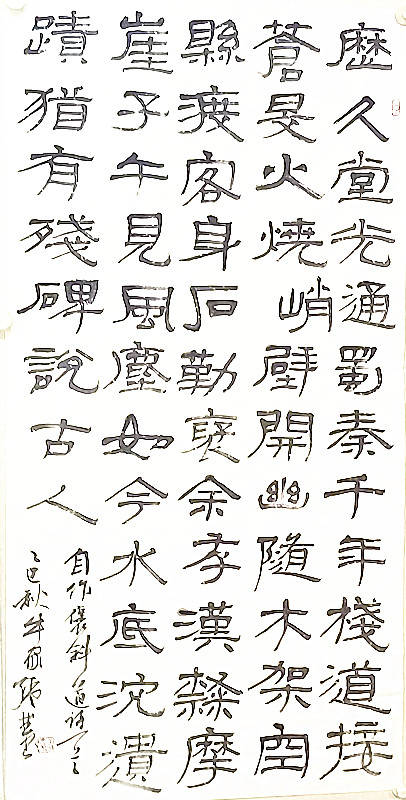 歷久堂光通蜀秦千年棧道接
蒼旻火燒峭壁開幽隧木架空
縣渡客身石勒褒余漢隸摩
崖子午見風塵如今水底沈遺
蹟猶有殘碑說古人
自作褒斜道詩一首
乙巳秋